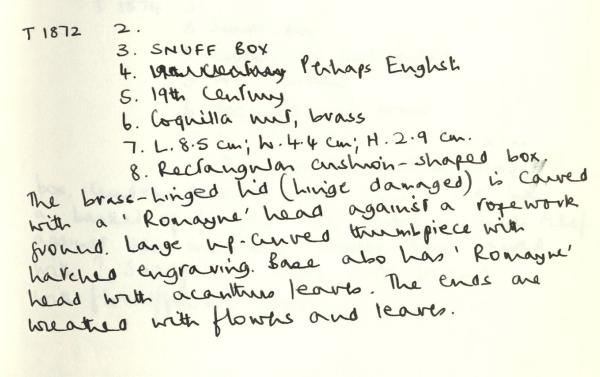 T 1872 2.
3. SNUFF BOX
4. Perhaps English
5. 19th Century
6. Coquilla nut, brass
7. L. 8.5 cm; W. 4.4 cm; H. 2.9 cm.
8. Rectangular cushion-shaped box.
The brass-hinged lid (hinge damaged) is carved
with a 'Romayne' head against a ropework
ground. Large up-curved thumbpiece with
hatched engraving. Base also has 'Romayne'
head with acanthus leaves. The ends are
wreathed with flowers and leaves.